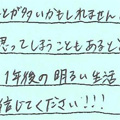 とが多いかもしれません
思ってしまうこともあると
1年後の明るい生活
信じてください!!!